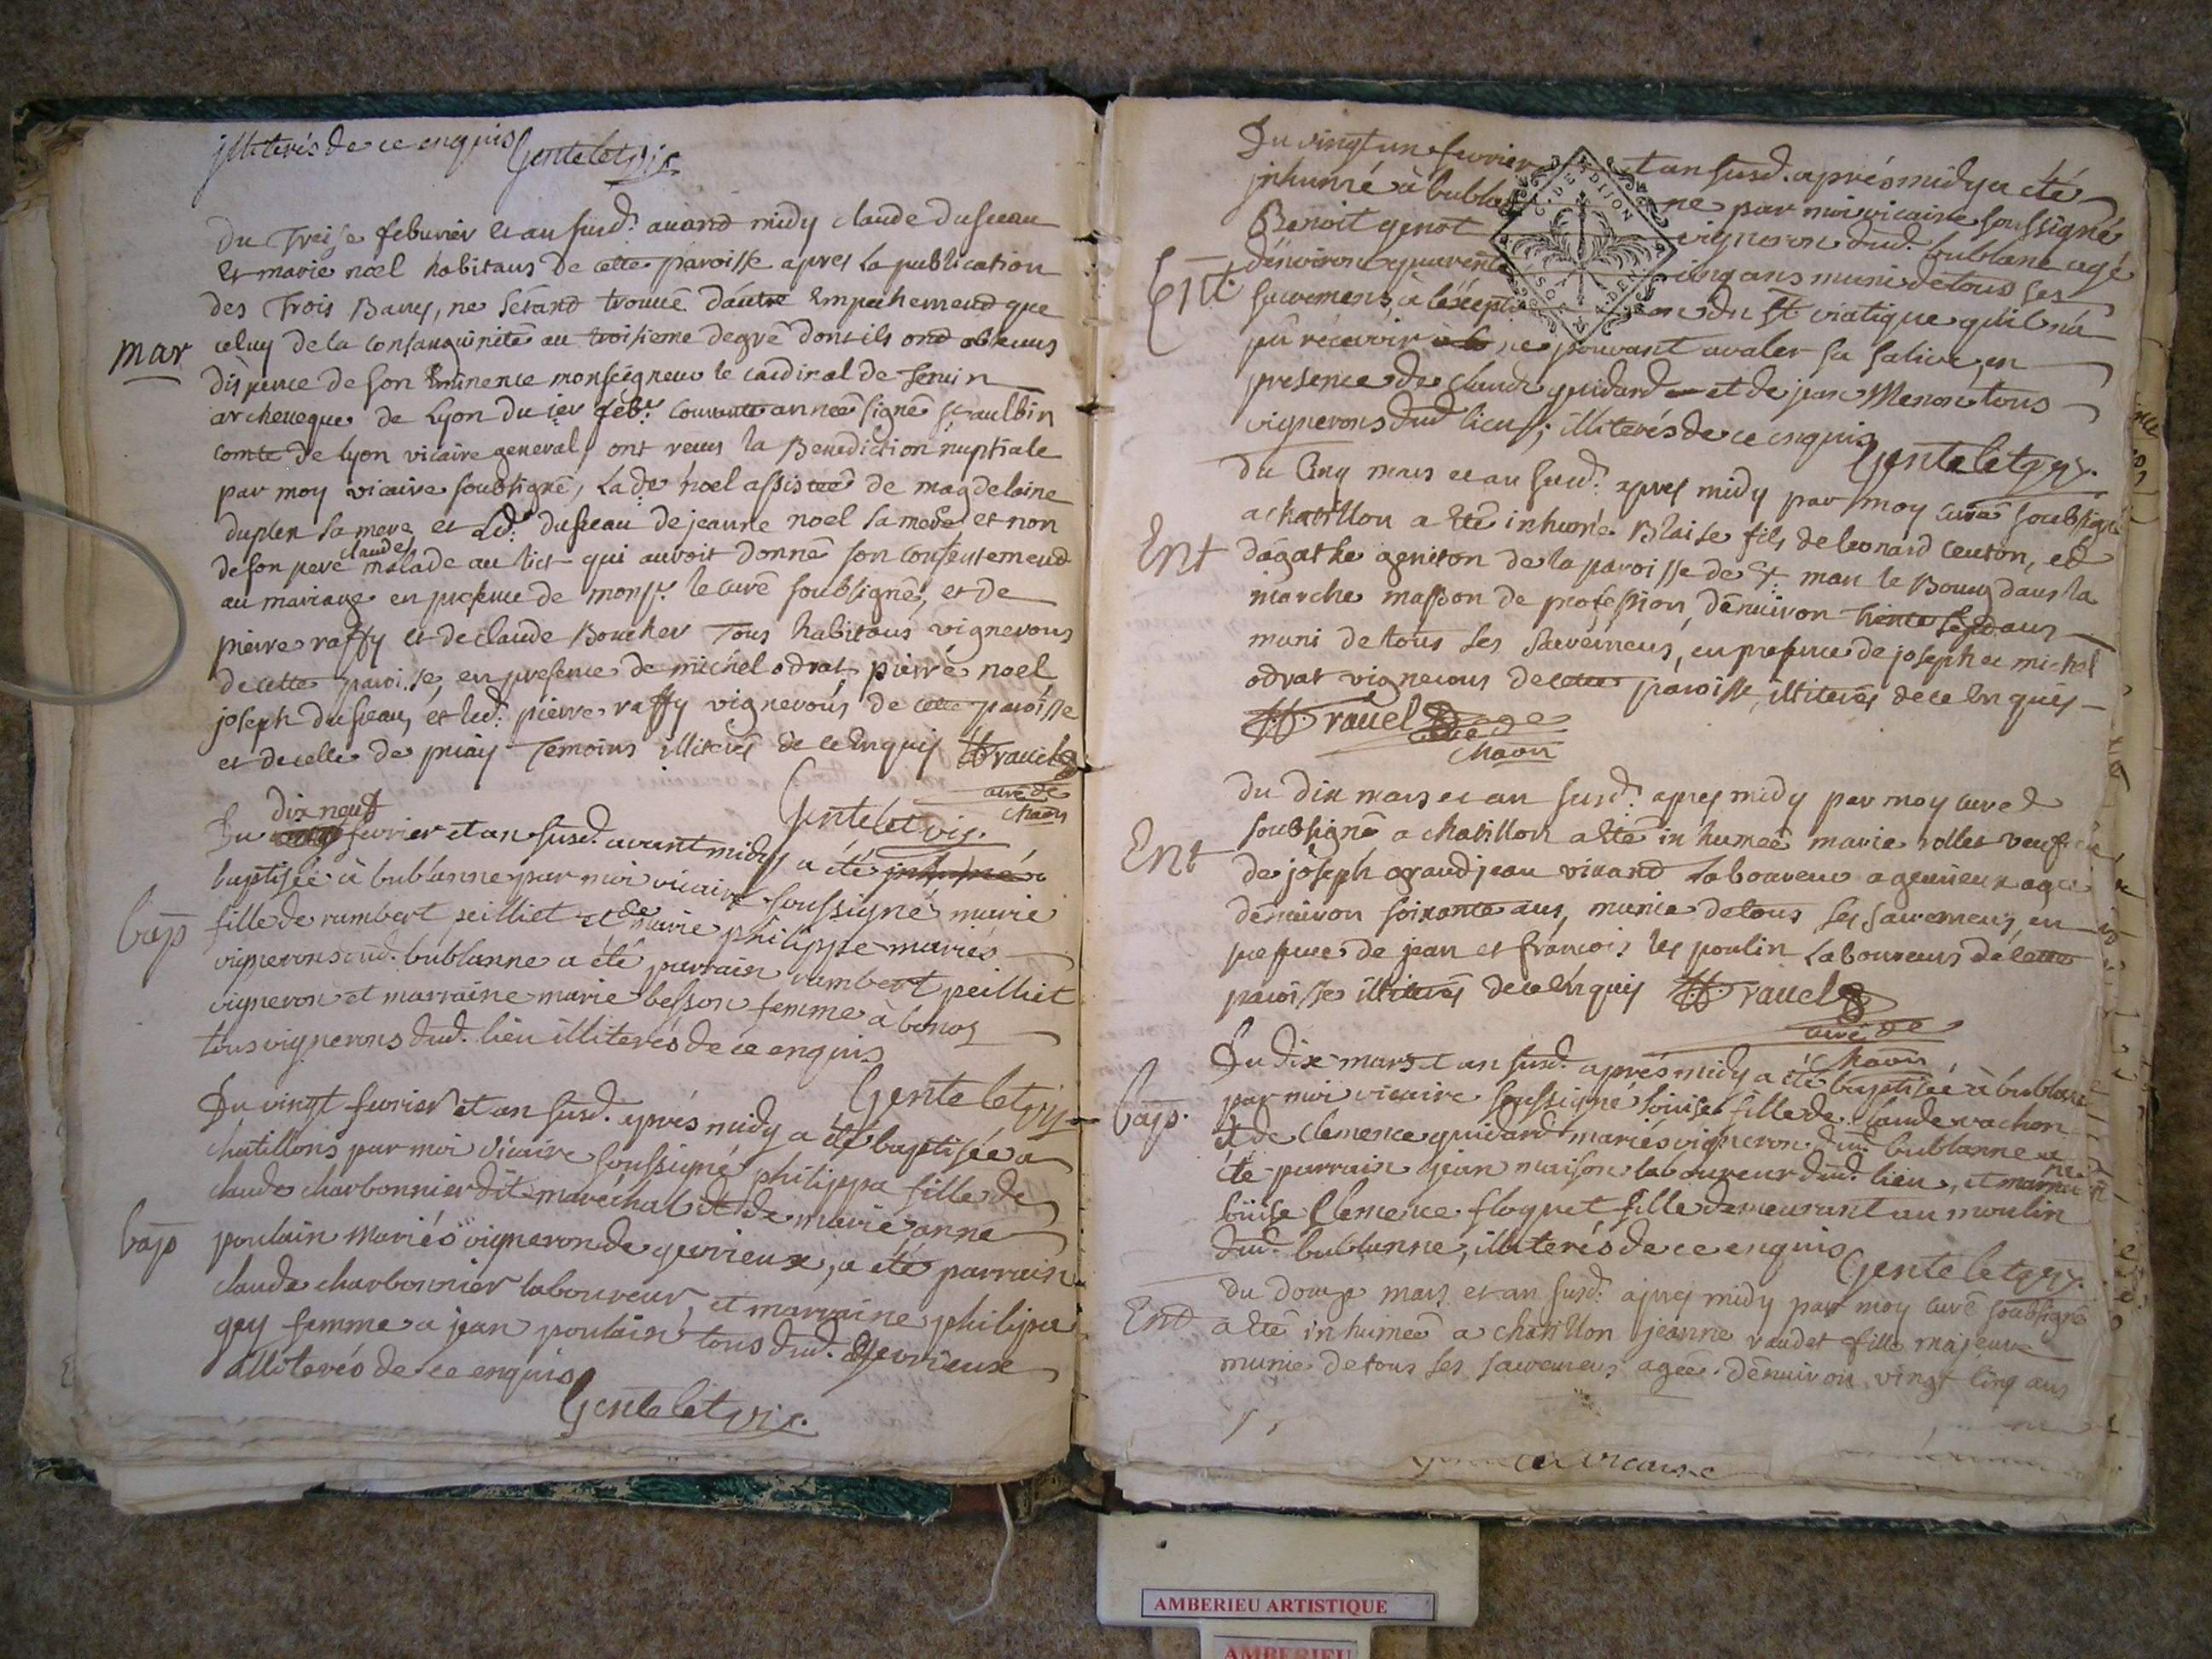 illiterés de ce enquis Gentelet vic.
du Treise febvrier et an susd. avand midy claude duseau
et marie noel habitans de cette paroisse apres la publication
des Trois Bans, ne sétand trouvé dautre Empechemend que
mar celuy de la consanguinité au troisieme degré dont ils ond obtenus
dispence de son Eminence monseigneur le cardinal de Tencin
archeveque de Lyon du ier feb. courante année signé st aulbin
comte de lyon vicaire general, ont receus la Benediction nuptiale
par moy vicaire soubsigné, lade noel assistée de magdelaine
la mere et led. duseau de jeanne noel sa mere et non
de son pere claude malade au lict qui auroit donné son consentemend
au mariage en presence de monsr. le curé soubsigné, et de
pierre raffy et de claude Boucher Tous habitans vignerons
de cette paroisse, en presence de michel odrat pierre noel
joseph duseau, et led. pierre raffy vignerons de cette paroisse
et de celle de priay Temoins illiterés de ce Enquis ravel
curé de
chaon
Gentelet vic.
dix neuf
Du fevrier et an susd. avant midy a été inhumé
baptisée à bublanne par moi vicaire soussigné marie
bap fille de rambert peilliet et de marie philippe mariés
vignerons dud. bublanne a été parrain rambert peilliet
vigneron et marraine marie besson femme à
tous vignerons dud. lieu illiterés de ce enquis
Gentelet vic.
Du vingt fevrier et an susd. aprés midy a été baptisée a
chatillons par moi vicaire soussigné philippa fille de
claude charbonnier dit maréchal et de marie anne
bap poulain mariés vigneron de gevrieux, a été parrain
claude charbonnier laboureur, et marraine philipa
gay femme a jean poulain tous dud. gevrieux
illiterés de ce enquis
Gentelet vic.
Du vingt un fevrier et an susd. aprés midy a été
inhumé à bublanne par moi vicaire soussigné
Benoit genot vigneron dud. bublane agé
d'environ quarente cinq ans muni de tous ses
Ent. sacremens, à l'exception du st viatique qu'il n'a
G. DE DIJON
pû recevoir ne pouvant avaler sa salive, en
presence de claude guidard et de jean Menon tous
vignerons dud lieu; illiterés de ce enquis
Gentelet vic.
du Cinq mars et an susd. apres midy par moy curé soubsigné
a chatillon a été inhumé Blaise fils de leonard
Ent dagathe de la paroisse de st. le Bourg dans la
marche masson de profession, denviron trente sept ans
muni de tous ses sacremens, en presence de joseph et michel
odrat vignerons de cette paroisse, illiterés de ce Enquis
ravel
curé de
chaon
du dix mars et an susd. apres midy par moy curé
soubsigné a chatillon a été inhumée marie rollet veufve
Ent de joseph grandjean vivand laboureur a gevrieux agée
denviron soixante ans, munie de tous ses sacremens, en
presence de jean et francois les poulin laboureurs de cette
paroisse illiterés de ce Enquis ravel
curé de
chaon
Du dix mars et an susd. aprés midy a été baptisée à bublane
bap. par moi vicaire soussigné louise fille de claude vachon
et de clemence guidard mariés vigneron dud. bublanne a
été parrain jean maison laboureur dud. lieu, et marraine
louise Clemence floquet fille demeurant au moulin
dud. bublanne, illiterés de ce enquis
Gentelet vic.
du douze mars et an susd. apres midy par moy curé soubsigné
Ent a été inhumée a chatillon jeanne vaudet fille majeure
munie de tous ses sacremens agée denviron vingt cinq ans
vicaire
AMBERIEU ARTISTIQUE
AMBERIEU